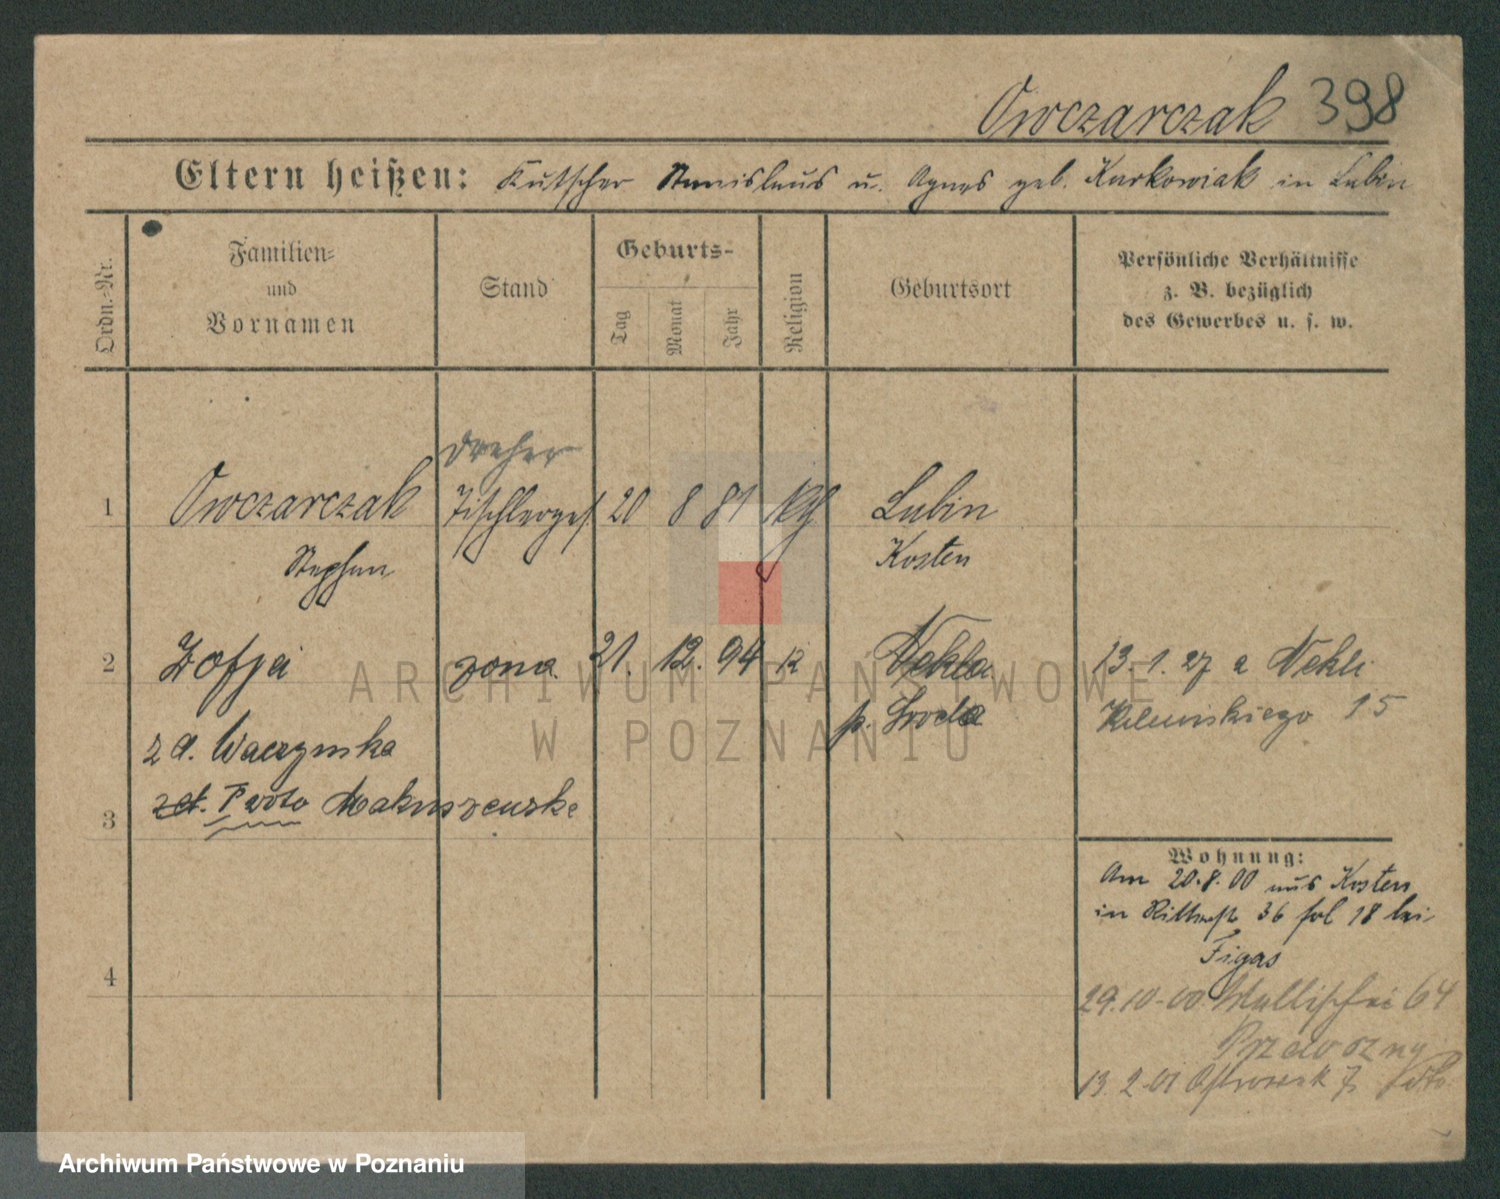 Owczarczak 398
Eltern heißen: Kutscher Stanislaus u. Agnes geb. Karkowiak in Lubin
Ordn.-Nr.
Familien-
und
Vornamen
Stand
Geburts-
Tag
Monat
Jahr
Religion
Geburtsort
Persönliche Verhältnisse
z. B. bezüglich
des Gewerbes u. s. w.
Dreher
1 Owczarczak Tischlerges. 20 8 81 kth Lubin
Stephan Kosten
2 Zofja żona 21. 12. 94 k Nekla 13. 1. 27 z Nekli
p. Środa 15
z d. Waczynska
3 I voto
Wohnung:
Am 20.8.00 aus Kosten
in Ritterstr 36 bei
Figas
4
29.10.00 Wallischei 64
13.2.01 Ostrowek 7
ARCHIWUM PAŃSTWOWE
W POZNANIU
Archiwum Państwowe w Poznaniu